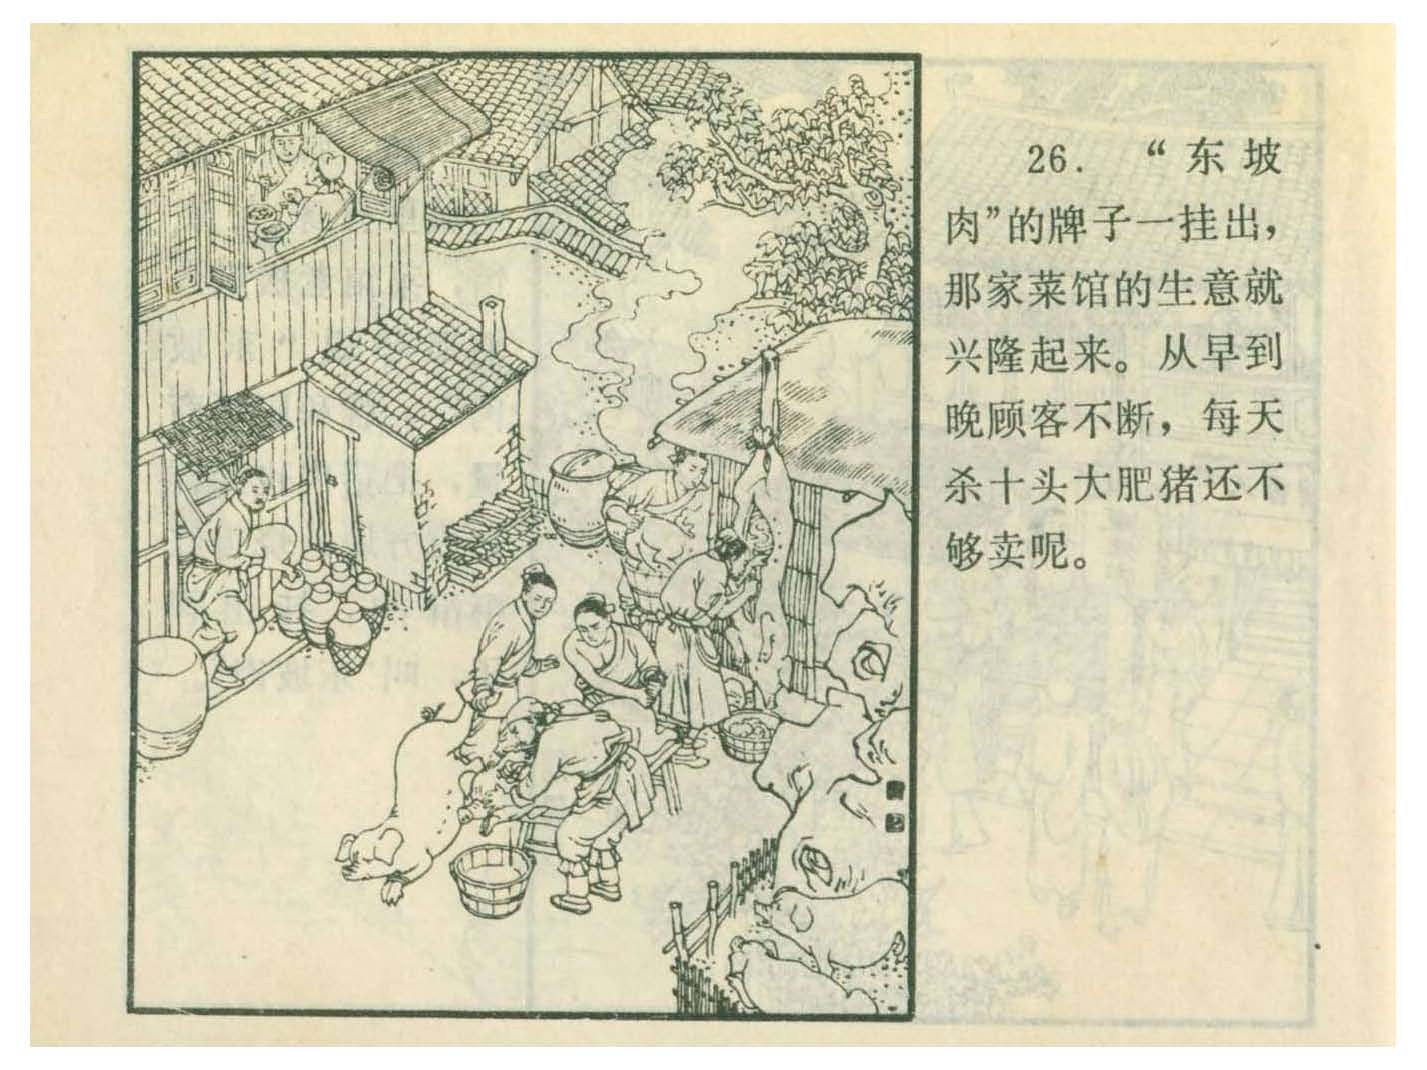 26. “东坡
肉”的牌子一挂出，
那家菜馆的生意就
兴隆起来。从早到
晚顾客不断，每天
杀十头大肥猪还不
够卖呢。